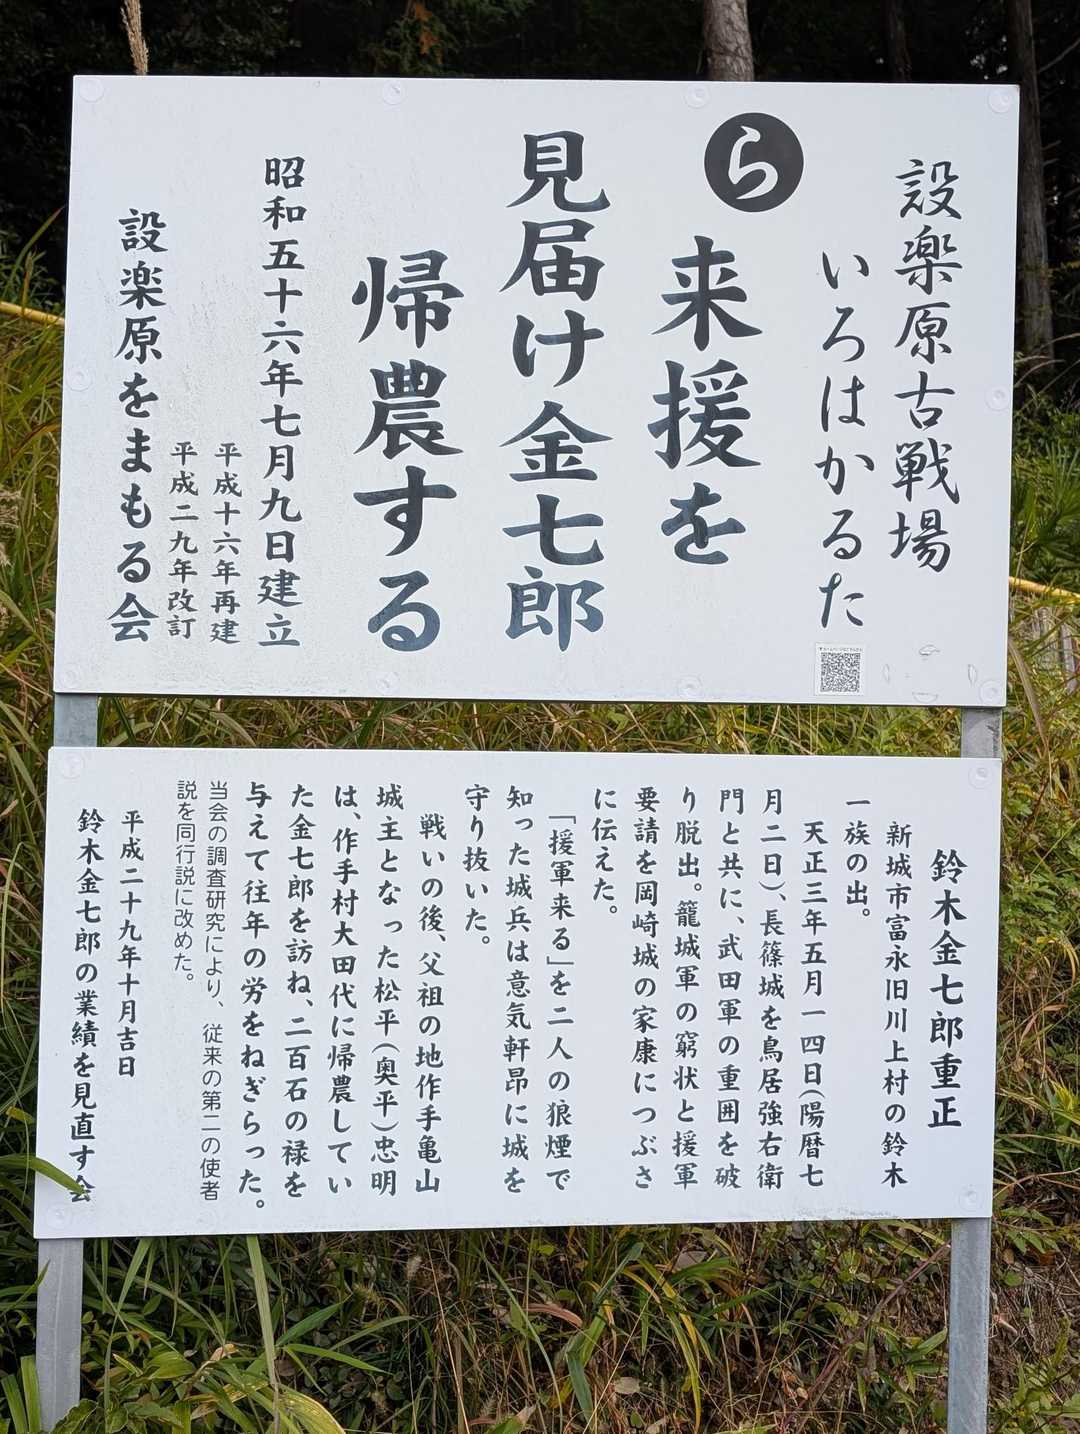 設楽原古戦場
いろはかるた
ら
来援を
見届け金七郎
帰農する
昭和五十六年七月九日建立
平成十六年再建
平成二九年改訂
設楽原をまもる会
鈴木金七郎重正
新城市富永旧川上村の鈴木
一族の出。
天正三年五月一四日(陽暦七
月二日)、長篠城を鳥居強右衛
門と共に、武田軍の重囲を破
り脱出。籠城軍の窮状と援軍
要請を岡崎城の家康につぶさ
に伝えた。
「援軍来る」を二人の狼煙で
知った城兵は意気軒昂に城を
守り抜いた。
戦いの後、父祖の地作手亀山
城主となった松平(奥平)忠明
は、作手村大田代に帰農してい
た金七郎を訪ね、二百石の禄を
与えて往年の労をねぎらった。
当会の調査研究により、従来の第二の使者
説を同行説に改めた。
平成二十九年十月吉日
鈴木金七郎の業績を見直す会